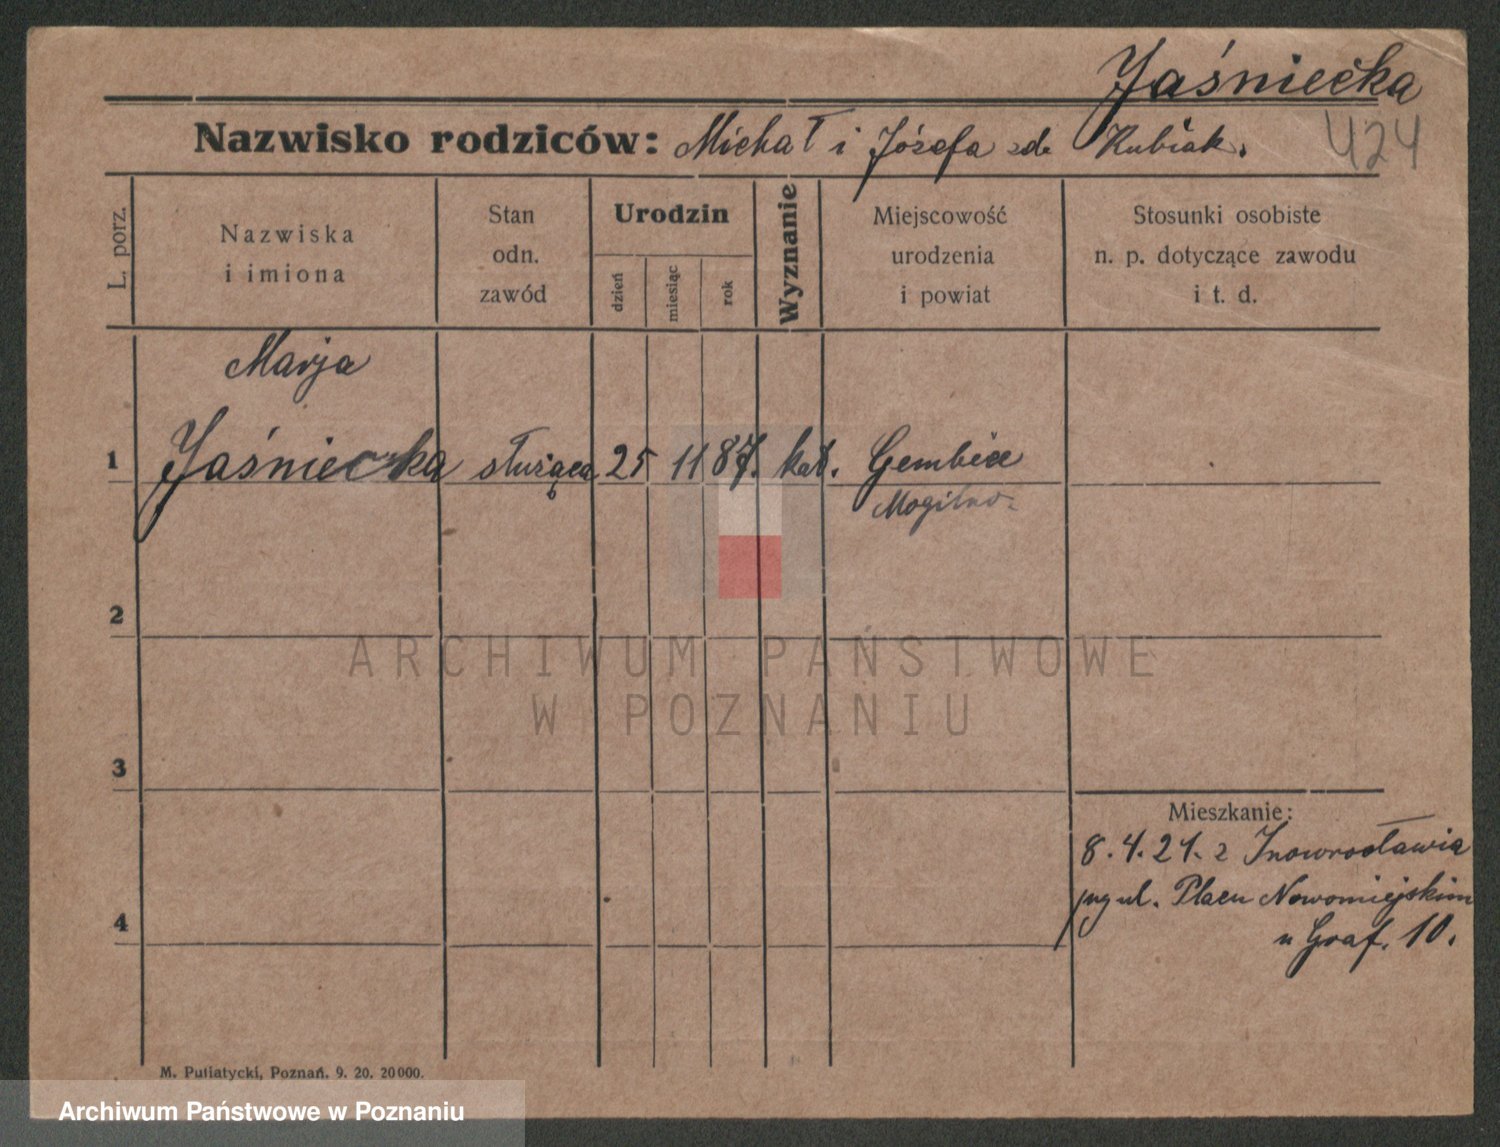 Jaśniecka
Nazwisko rodziców: Michał i Józefa zd. Kubiak.
424
L. porz.
Nazwiska
i imiona
Stan
odn.
zawód
Urodzin
dzień
miesiąc
rok
Wyznanie
Miejscowość
urodzenia
i powiat
Stosunki osobiste
n. p. dotyczące zawodu
i t. d.
Marja
1 Jaśniecka służąca 25 11 87. kat. Gembice
Mogilno.
2
ARCHIWUM PAŃSTWOWE
W POZNANIU
3
Mieszkanie:
8.4.21. z Inowrocławia
ul. Placu Nowomiejskim
u Graf. 10.
4
M. Putiatycki, Poznań. 9. 20. 20000.
Archiwum Państwowe w Poznaniu